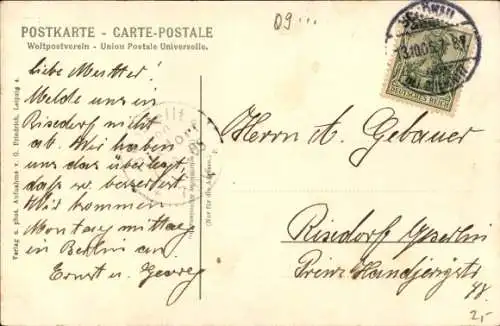 D9...
POSTKARTE - CARTE-POSTALE
Weltpostverein - Union Postale Universelle.
DEUTSCHES REICH
Verlag u. phot. Aufnahme v. G. Friedrich, Leipzig 4.
Liebe Mutter!
Melde uns in
Rixdorf nicht
ab. Wir haben
uns das überlegt,
daß es besser ist.
Wir kommen
Montag mittag
in Berlin an.
Ernst u. Georg
(Nur für die Adresse.)
Herrn A. Gebauer
Rixdorf b/Berlin
Prinz Handjerystr
48.
2,-